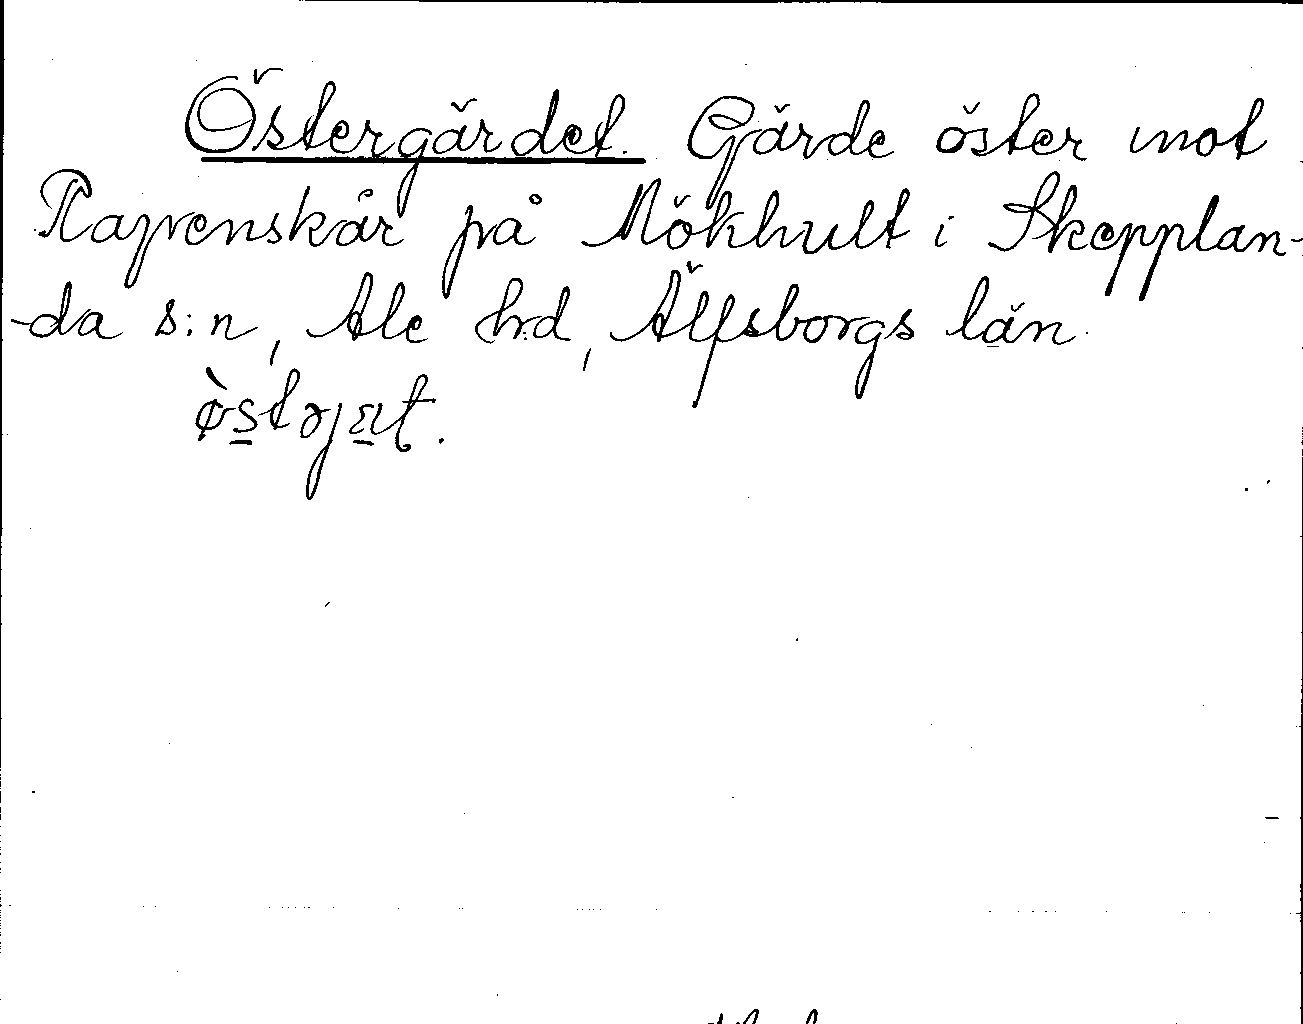 Östergärdet. Gärde öster mot
Rapenskär på Mökhult i Skepplan-
-da s:n, Ale hd, Älfsborgs län